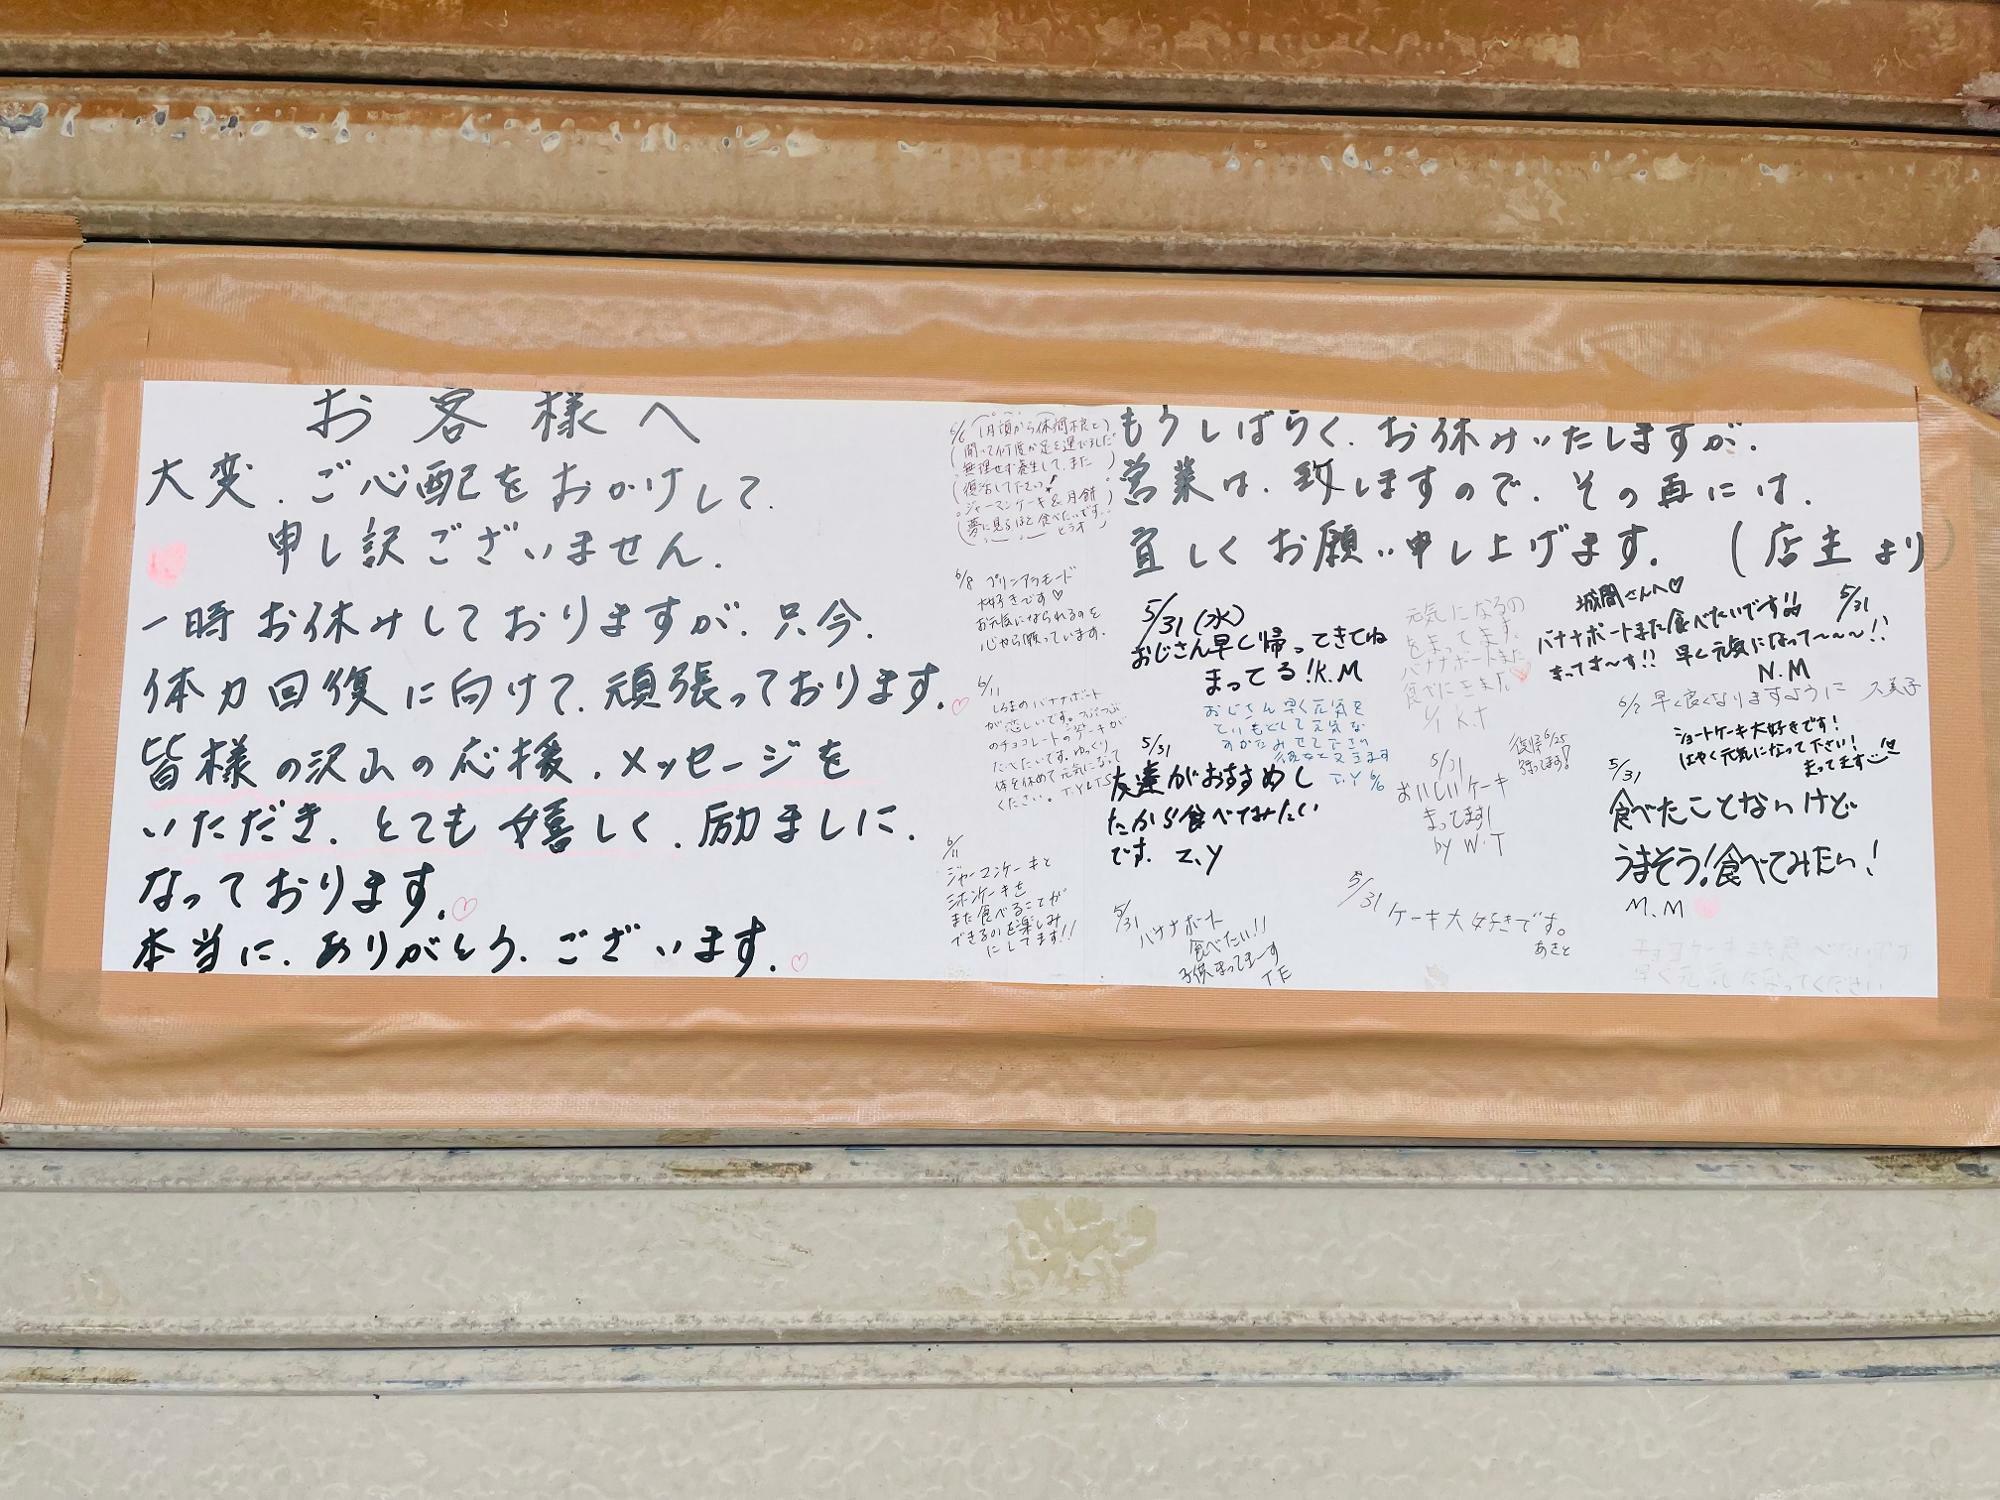 お客様へ
大変、ご心配をおかけして、
申し訳ございません。
一時お休みしておりますが、只今、
体力回復に向けて、頑張っております。
皆様の沢山の応援、メッセージを
いただき、とても嬉しく、励ましに、
なっております。
本当に、ありがとう、ございます。
もうしばらく、お休みいたしますが、
営業は、致しますので、その再には、
宜しくお願い申し上げます。 (店主より)
6/6 1月頃から休業と
聞いて何度か足を運びました
無理せず養生して、また
復活して下さい!
ジャーマンケーキ& 月餅
夢に見るほど食べたいです。
6/8 プリンアラモード
大好きです♡
お元気になられるのを
心から願っています。
6/11
しろまのバナナボート
が恋しいです。つぶつぶ
のチョコレートのケーキが
たべたいです。ゆっくり
体を休めて元気になって
ください。 T.Y&T.S
6/11
ジャーマンケーキと
シホンケーキを
また食べることが
できるのを楽しみ
にしてます!!
5/31(水)
おじさん早く帰ってきてね
まってる!K.M
おじさん早く元気を
とりもどして元気な
すがたみせて下さい
T.Y 6/6
5/31
友達がおすすめし
たから食べてみたい
です. Z,Y
5/31
バナナボート
食べたい!!
子供まってまーす
T E
元気になるの
をまってます。
バナナボートまた
食べにきまた
6/1 K.T
復帰6/25
待ってます!
5/31
おいしいケーキ
まってます!
by W.T
5/31
ケーキ大好きです。
あさと
城間さんへ♡
5/31
バナナボートまた食べたいです!!
まってま~す!! 早く元気になって~~~!!
N.M
6/2 早く良くなりますように 久美子
ショートケーキ大好きです!
はやく元気になって下さい!
まってます
5/31
食べたことないけど
うまそう!食べてみたい!
M.M
早く元気になってください